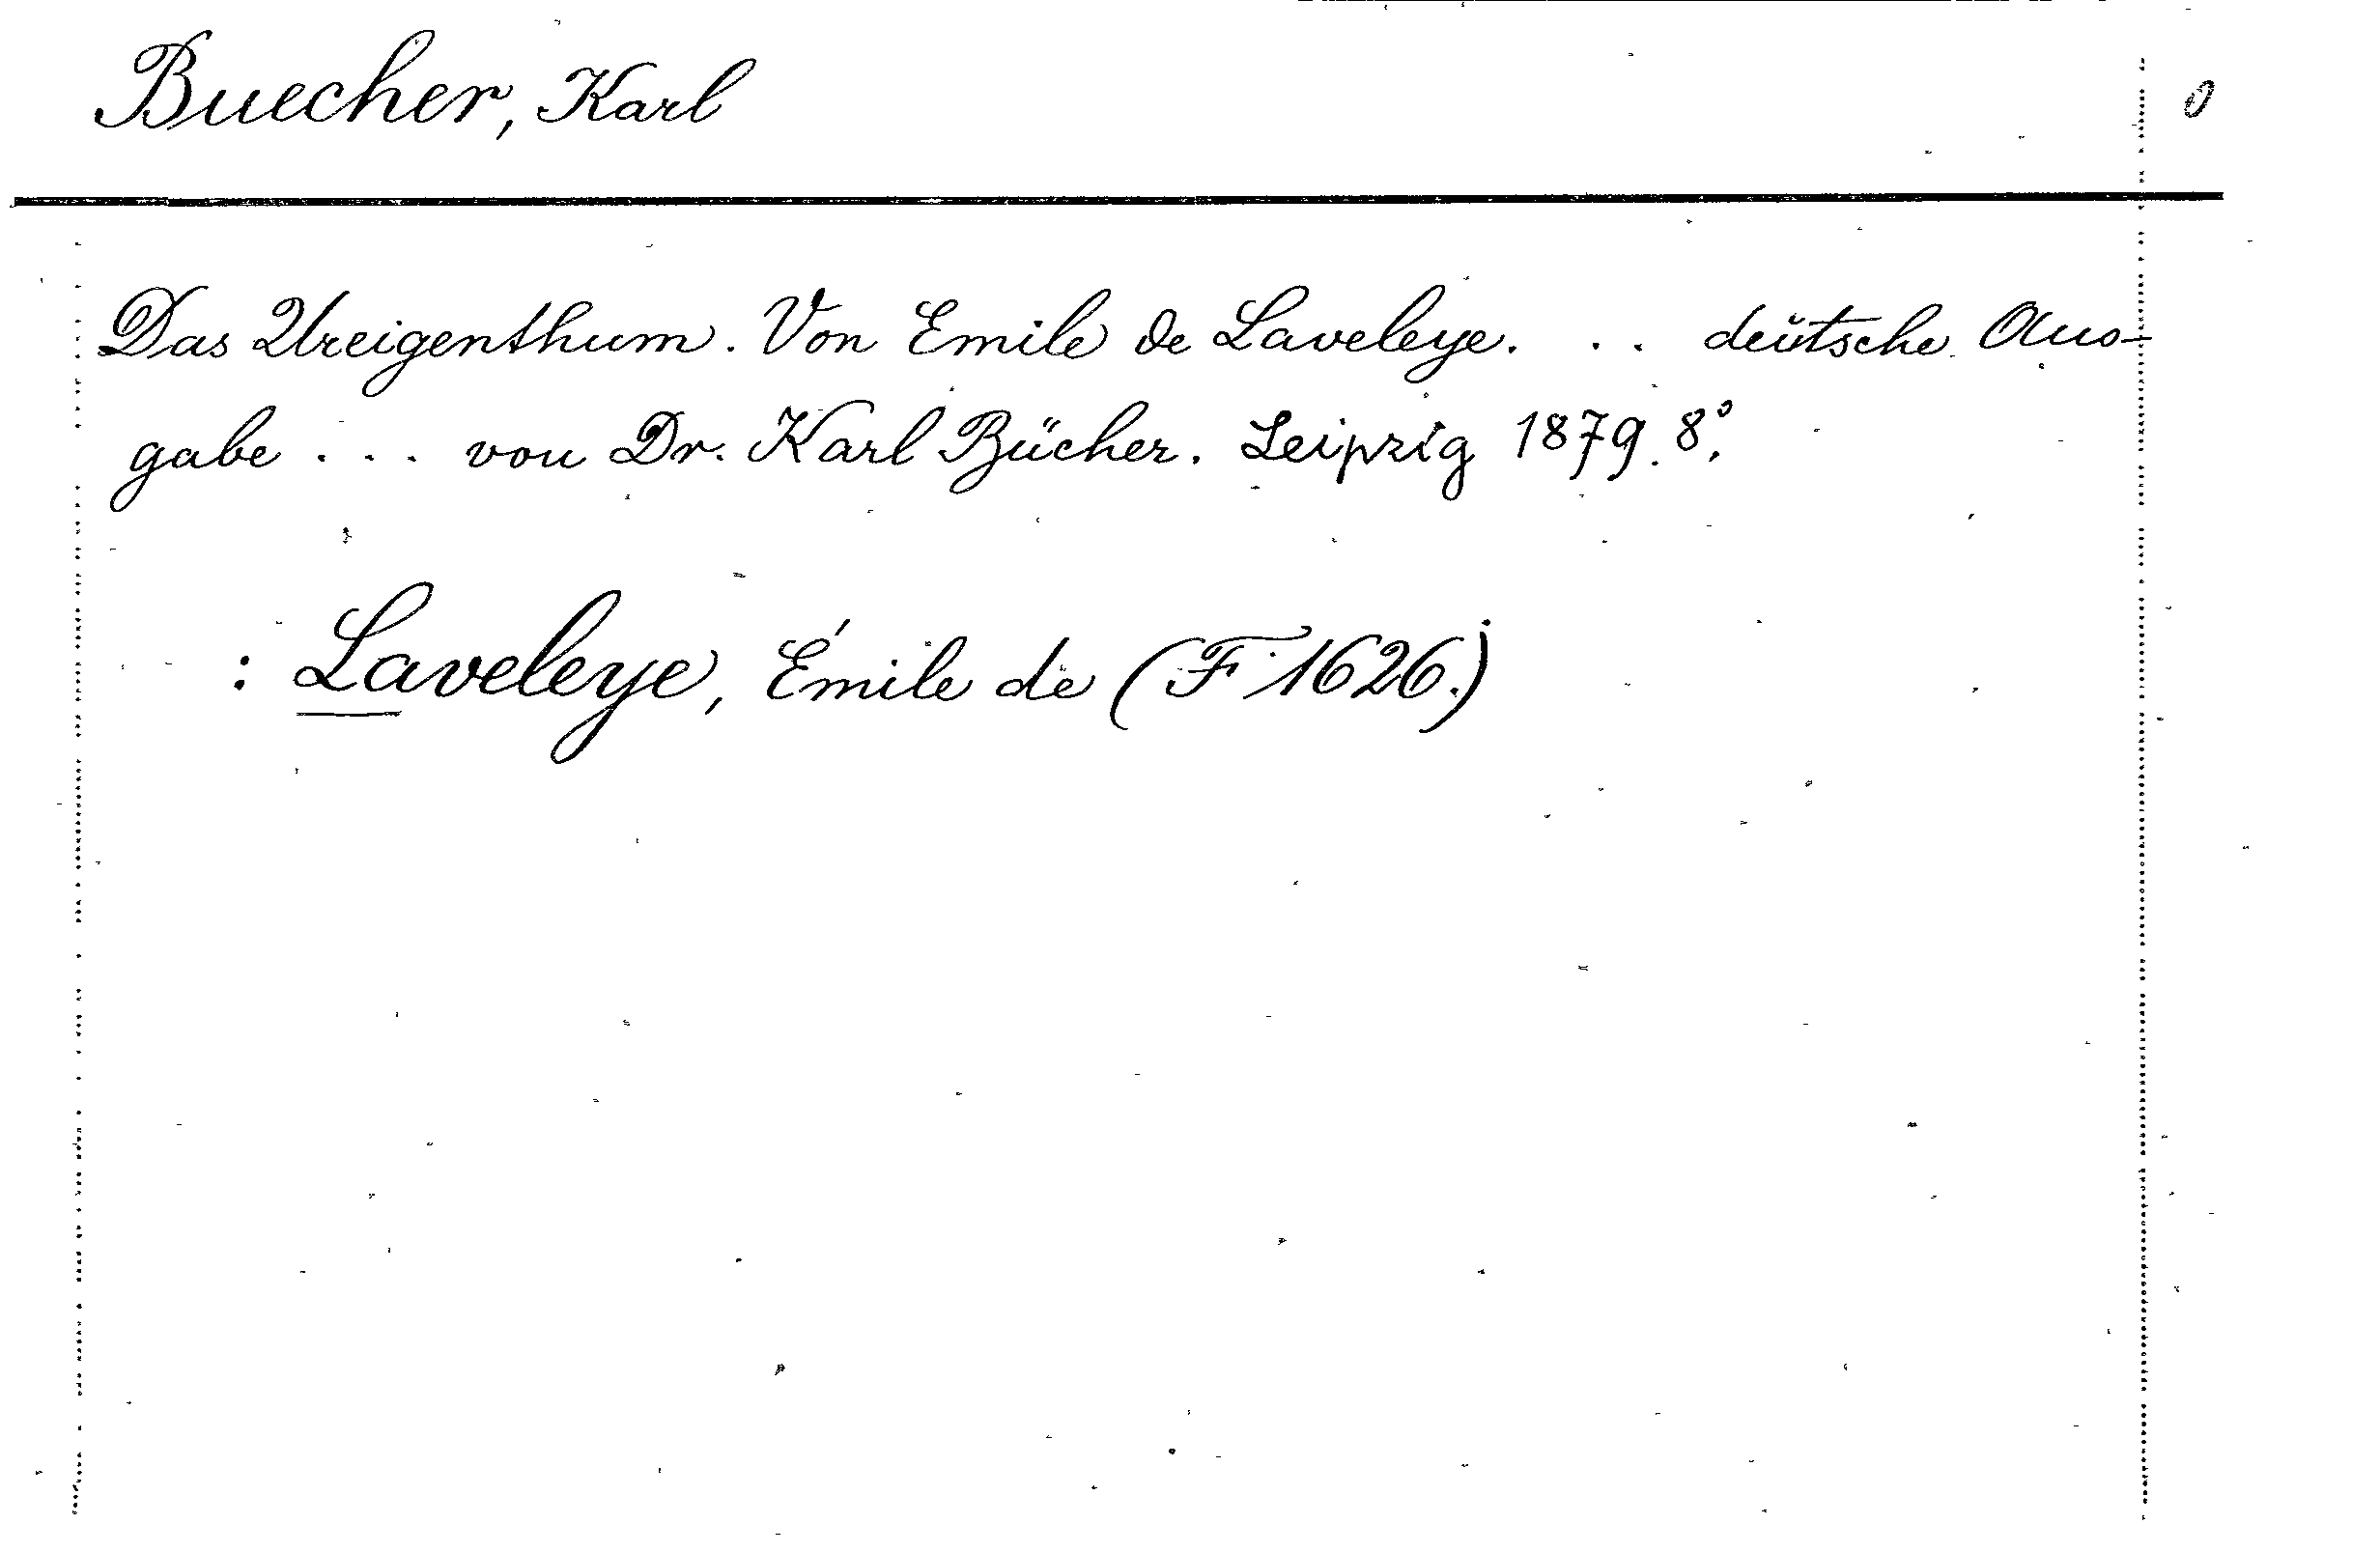 Buecher, Karl 0
Das Ureigenthum. Von Emile de Laveleye. . . deutsche Aus-
gabe . . . von Dr. Karl Bücher. Leipzig 1879. 8°.
: Laveleye, Émile de (F 1626.)